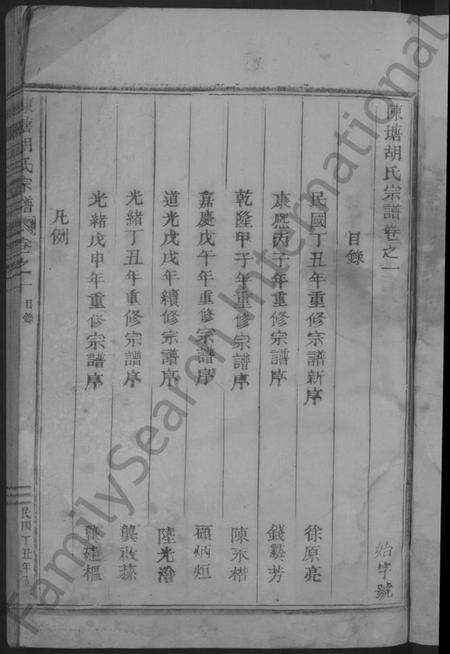 陳塘胡氏宗譜卷之一 始字號
目錄
民國丁丑年重修宗譜新序 徐原亮
康熙丙子年重修宗譜序 錢芳
乾隆甲子年重修宗譜序 陳丕楷
嘉慶戊午年重修宗譜序 顧炳烜
道光戊戌年續修宗譜序 陸光濬
光緒丁丑年重修宗譜序 龔
光緒戊申年重修宗譜序 樞
凡例
陳塘胡氏宗譜 卷之一 目錄 民國丁丑年
FamilySearch International